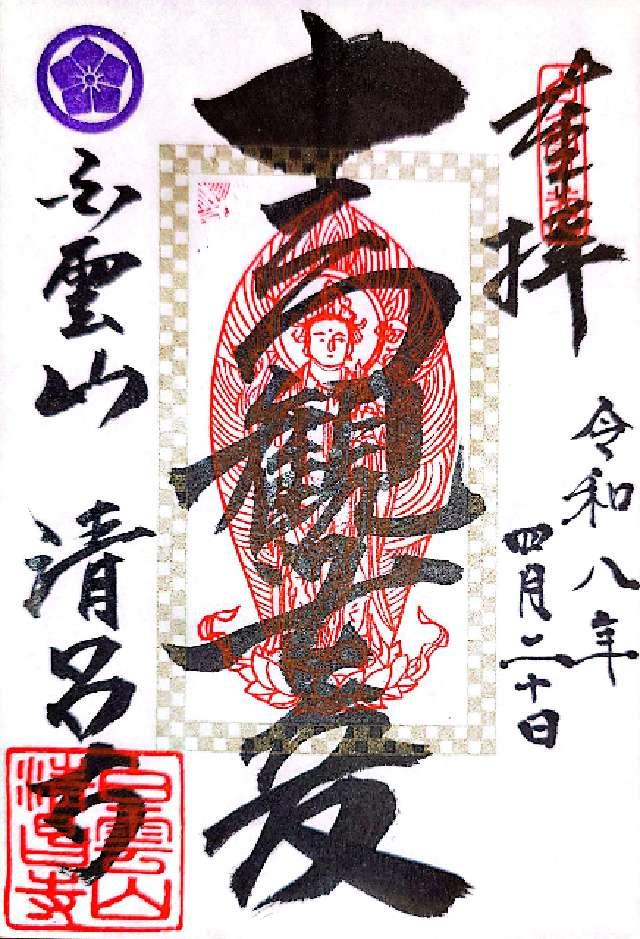 奉拝
令和八年
四月二十日
十一面觀世音
白雲山 清昌寺
白雲山
清昌寺